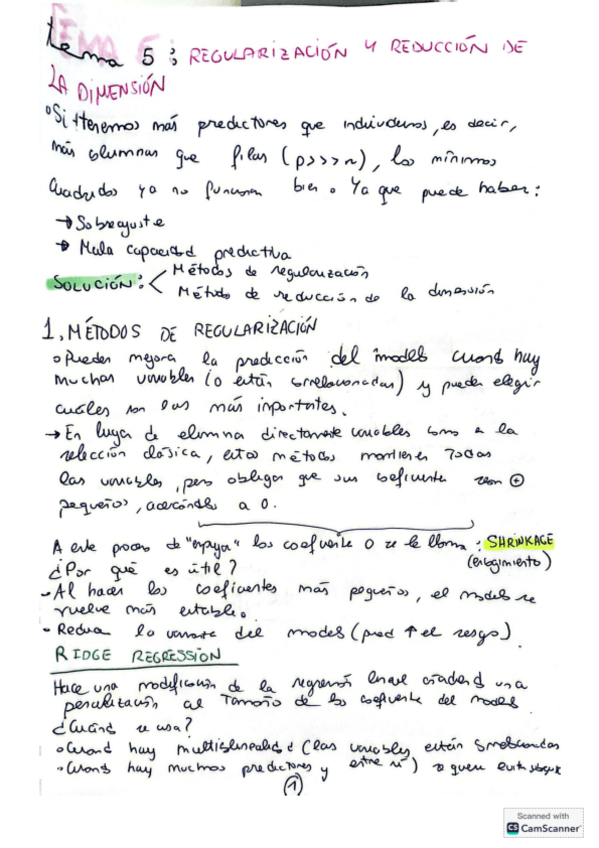 tema 5: REGULARIZACIÓN Y REDUCCIÓN DE
LA DIMENSIÓN
Si tenemos más predictores que individuos, es decir,
más columnas que filas (p>>>n), los mínimos
cuadrados ya no funcionan bien. Ya que puede haber:
→ Sobreajuste
→ Mala capacidad predictiva
SOLUCIÓN: < Métodos de regularización
Método de reducción de la dimensión
1. MÉTODOS DE REGULARIZACIÓN
Pueden mejorar la predicción del modelo cuando hay
muchas variables (o están correlacionadas) y pueden elegir
cuáles son las más importantes.
→ En lugar de eliminar directamente variables como en la
selección clásica, estos métodos mantienen todas
las variables, pero obligan que sus coeficientes sean +
pequeños, acercándolos a 0.
A este proceso de "empujar" los coeficientes 0 se le llama: SHRINKAGE
(encogimiento)
¿Por qué es útil?
- Al hacer los coeficientes más pequeños, el modelo se
vuelve más estable.
- Reduce la varianza del modelo (pred ↑ el sesgo).
RIDGE REGRESSION
Hace una modificación de la regresión lineal añadiendo una
penalización al tamaño de los coeficientes del modelo
¿Cuándo se usa?
Cuando hay multicolinealidad (las variables están correlacionadas
entre sí)
Cuando hay muchos predictores y se quiere evitar
1
Scanned with
CS CamScanner